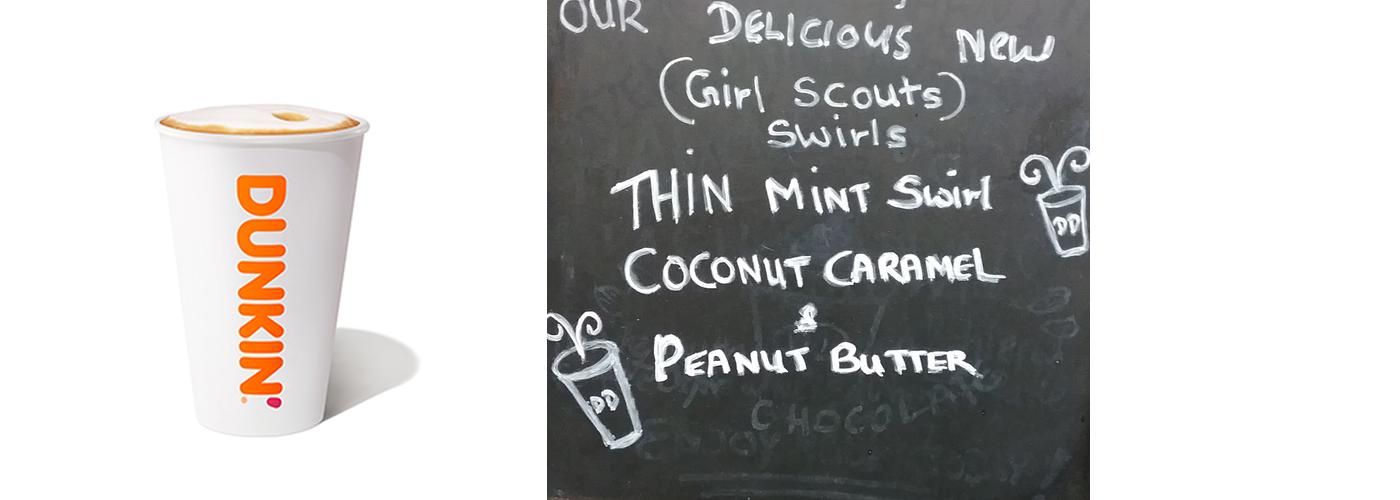 DUNKIN'
OUR DELICIOUS New
(Girl Scouts)
Swirls
THIN MINT Swirl
COCONUT CARAMEL
&
PEANUT BUTTER
DD
DD
CHOCOLATE
ENJOY